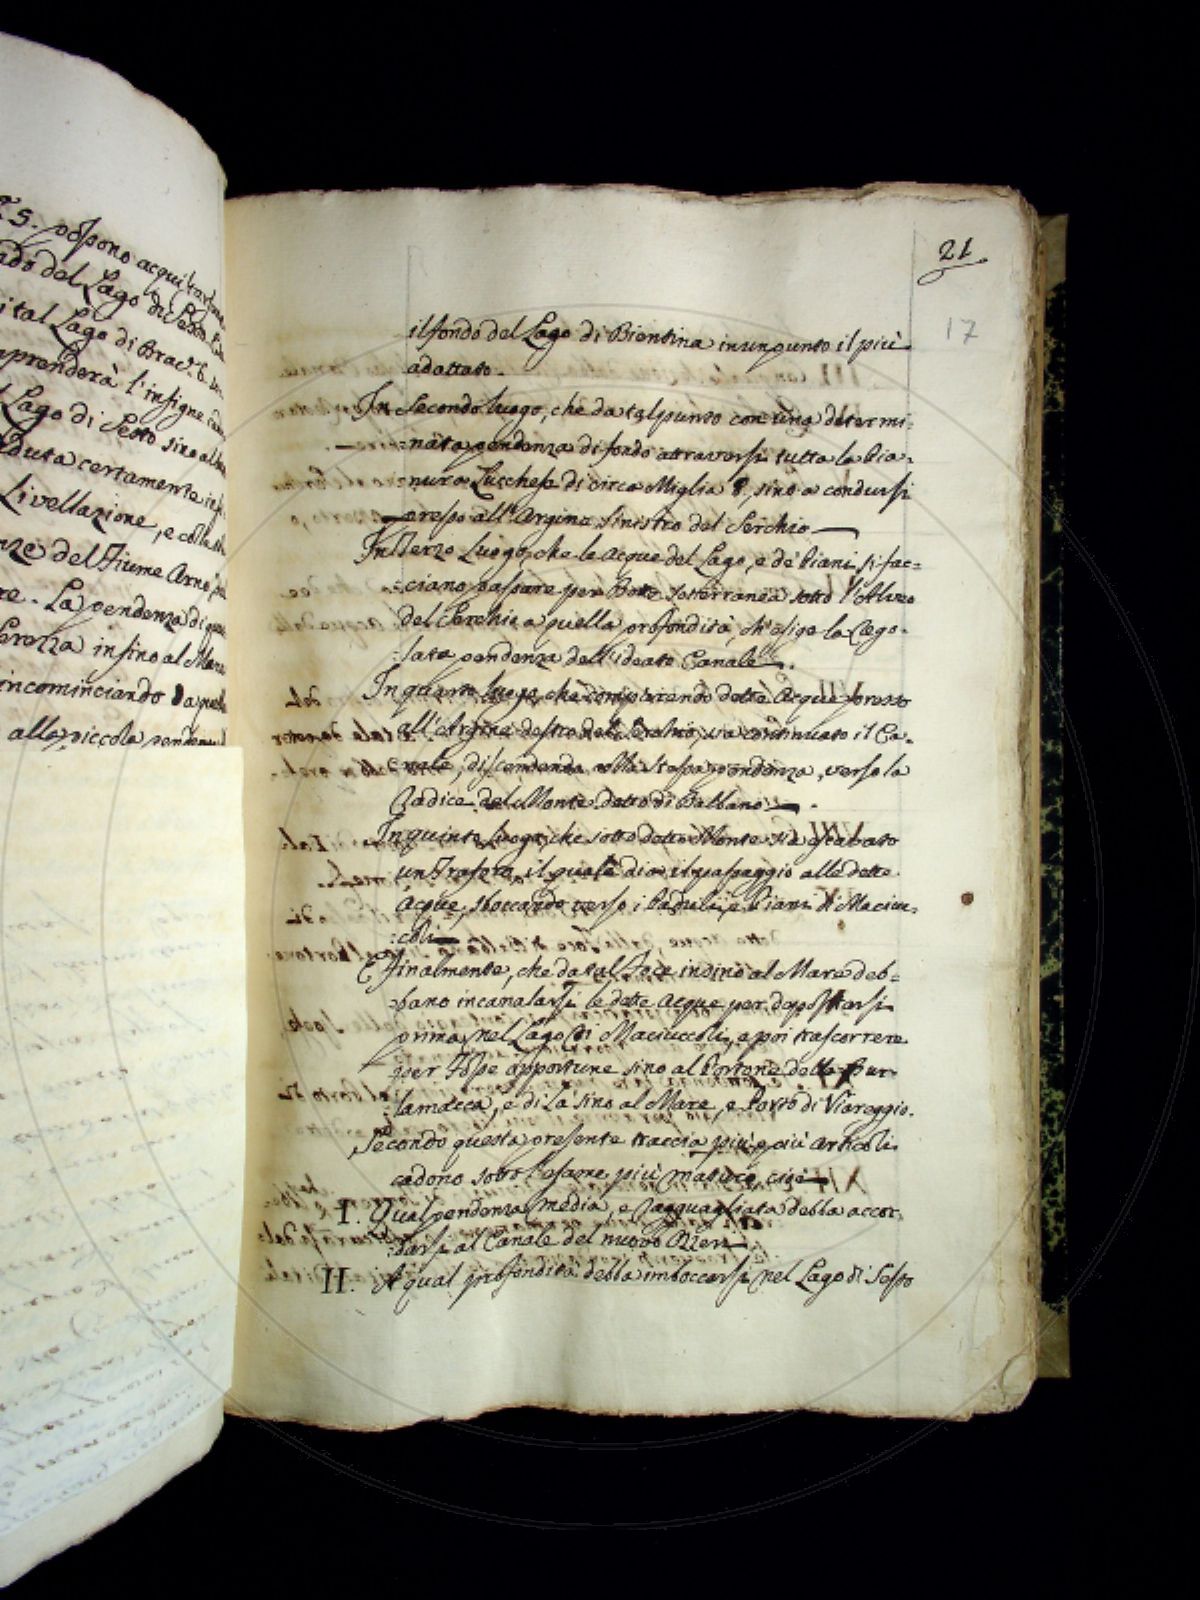 S. possono acquistar
ado del Lago di Sesto
ital Lago di
prenderà l'insigne
Lago di Sesto sino al
duta certamente
Livellazione, e colla
nze del Fiume Arno
re. La pendenza di
Serezza insino al Mare
incominciando da quel
alla piccola pendenza
21
17
il fondo del Lago di Bientina in un punto il più
adattato.
In Secondo luogo, che da tal punto con una determi:
:nata pendenza di fondo attraversi tutta la Pia:
:nura Lucchese di circa Miglia 8. sino a condursi
presso all'Argine sinistro del Serchio
In Terzo Luogo, che le acque del Lago, e de' Piani si fac:
:ciano passare per Botte sotterranea sotto l'Alveo
del Serchio a quella profondità, ch'esige la Rego:
:lata pendenza dell'ideato Canale.
In quarto luogo, che comparendo dette Acque presso
all'Argine destro del Serchio, sia continuato il Ca:
:nale, discendendo colla stessa pendenza, verso la
Radice del Monte detto di Balbano.
In quinto luogo, che sotto detto Monte sia escavato
un Traforo, il quale dia il passaggio alle dette
Acque, sboccando verso i Paduli, e Piani di Maciuc:
:coli
E finalmente, che da tal Foce insino al Mare deb:
:bano incanalarsi le dette Acque per depositarsi
prima nel Lago di Maciuccoli, e poi trascorrere
per Fosse opportune sino al Portone della Bur:
:lamacca, e di là sino al Mare, e Porto di Viareggio.
Secondo questa presente traccia più e più articoli
cadono sotto l'esame più maturo, cioè
I. Qual pendenza media, e ragguagliata debba accor:
:darsi al Canale del nuovo Ozeri
II. A qual profondità debba imboccarsi nel Lago di Sesto